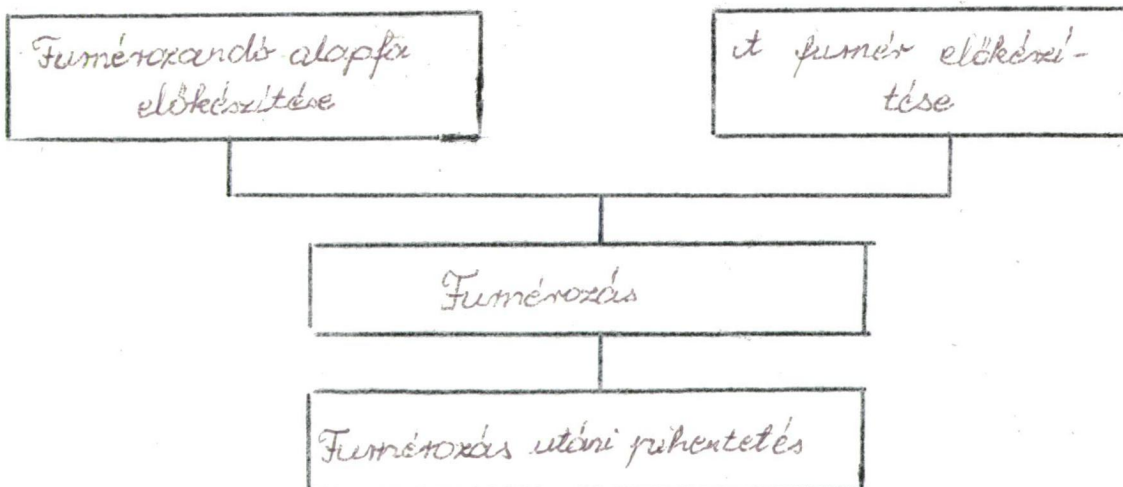 Furnérozandó alapfa
előkészítése
A furnér előkészí-
tése
Furnérozás
Furnérozás utáni pihentetés